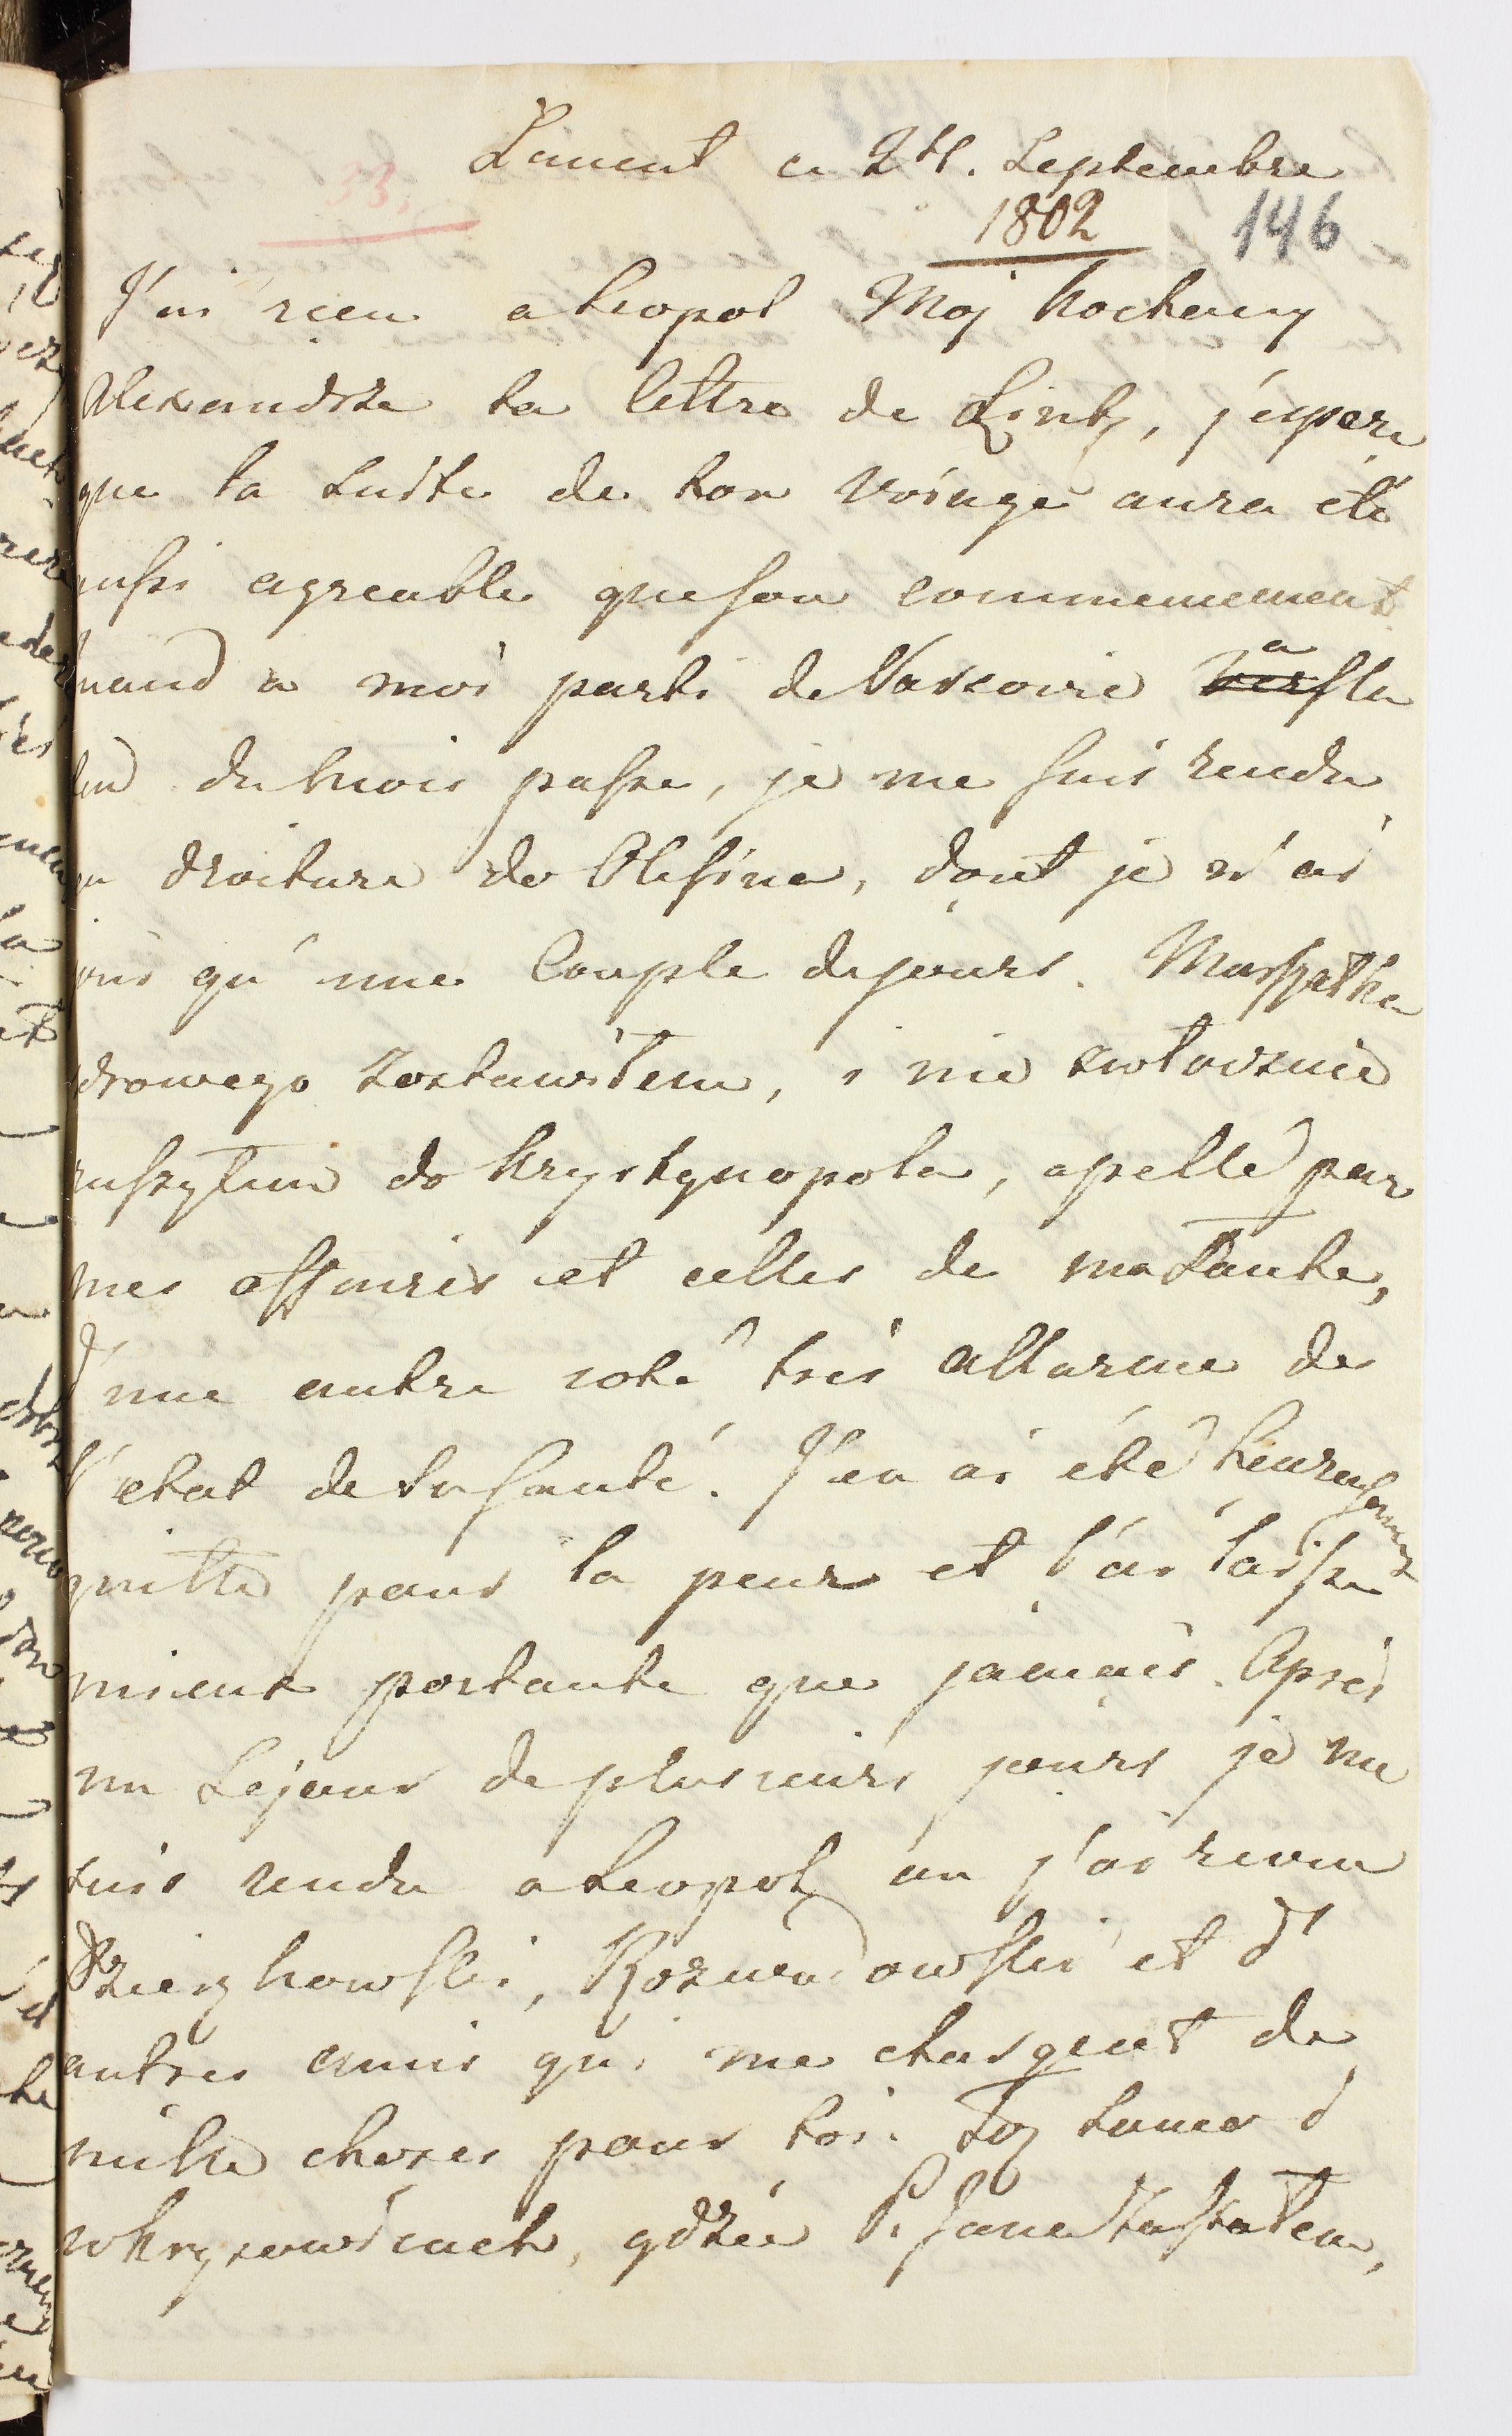 Lancut ce 24. Septembre
33.
1802
146
J'ai reçu a Leopol Moj kochany
Alexandre ta lettre de Lintz, j'espere
que la suite de ton voiage aura été
aussi agreable que son commencement
quand a moi parti de Varsovie a la
fin du mois passe, je me suis rendu
en droiture do Olesina, dont je n'ai
joui qu'une Couple de jours. Maszatka
zdrowego zostawiłem, i nie zwłocznie
ruszyłem do Krystynopola, apellé par
mes affaires et celles de ma Tante,
d'une autre coté très allarme de
l'etat de sa santé. J'en ai été heureusement
quitte pour la peur et l'ai laissée
mieux portante que jamais. Après
un Sejour de plusieurs jours je me
suis rendu a Leopol, ou j'ai revu
Dzierzkowski, Rozwadowski et d'
autres amis qui me chargent de
mille choses pour toi. Toż samo i
w Krysowicach, gdzie P. Jana zastałem,